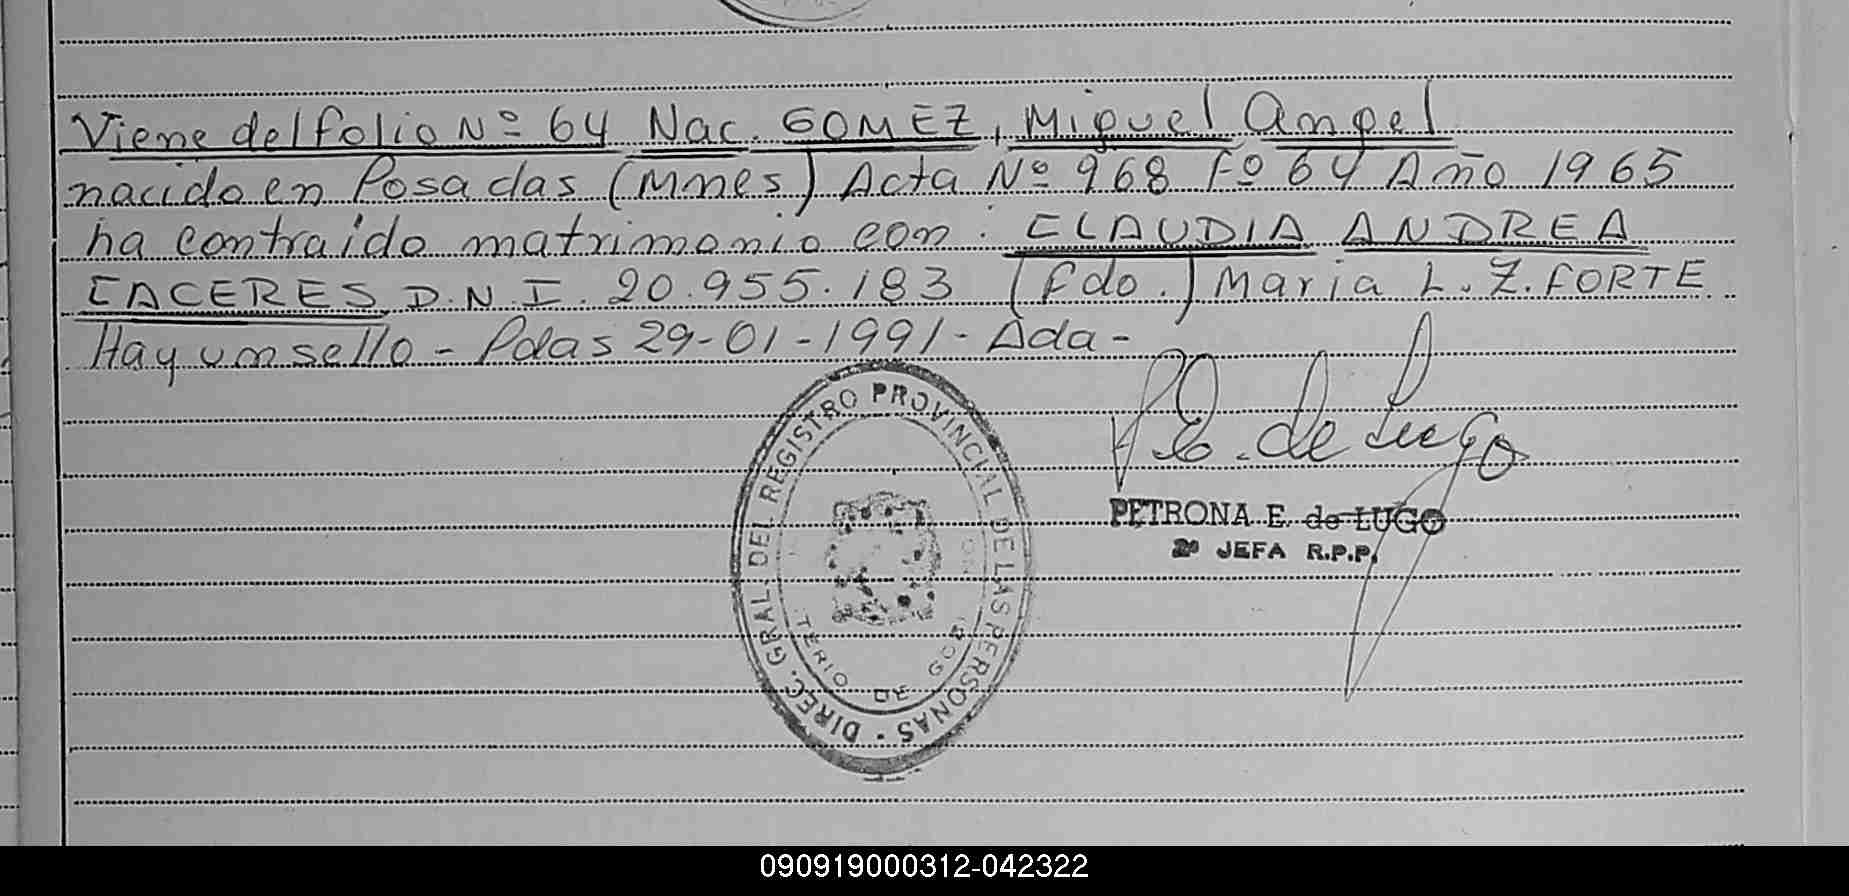 Viene del folio Nº 64 Nac. GOMEZ, Miguel Angel
nacido en Posadas (Mnes) Acta Nº 968 Fº 64 Año 1965
ha contraído matrimonio con: CLAUDIA ANDREA
CACERES D.N.I. 20.955.183 (Fdo.) Maria L. Z. FORTE
Hay un sello - Pdas 29-01-1991 - Ada -
P E. de Lugo
PETRONA E. de LUGO
2º JEFA R.P.P.
DIREC. GRAL. DEL REGISTRO PROVINCIAL DE LAS PERSONAS
TERIO DE GOB
090919000312-042322